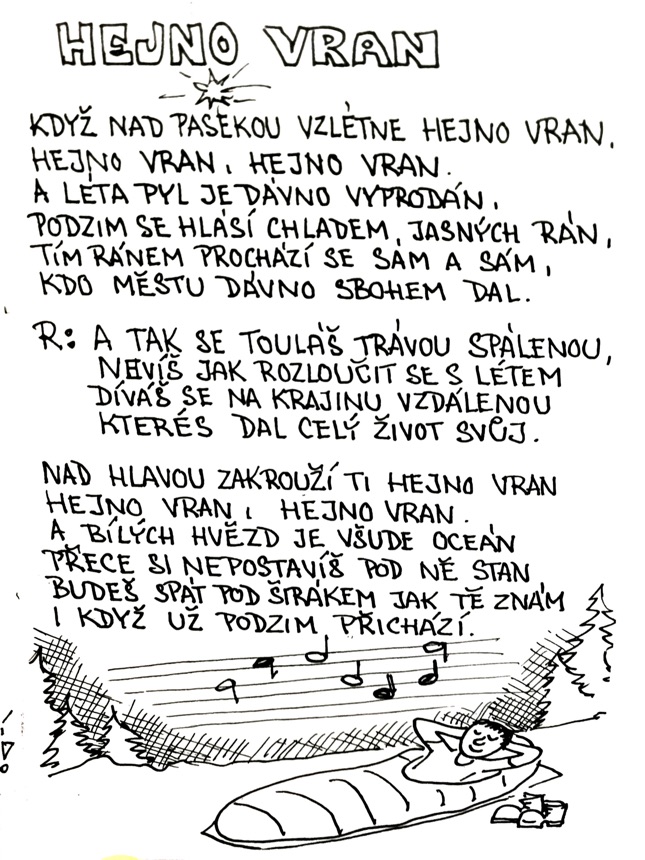 HEJNO VRAN
KDYŽ NAD PASEKOU VZLÉTNE HEJNO VRAN,
HEJNO VRAN, HEJNO VRAN.
A LÉTA PYL JE DÁVNO VYPRODÁN,
PODZIM SE HLÁSÍ CHLADEM, JASNÝCH RÁN,
TÍM RÁNEM PROCHÁZÍ SE SÁM A SÁM,
KDO MĚSTU DÁVNO SBOHEM DAL.
R: A TAK SE TOULÁŠ TRÁVOU SPÁLENOU,
NEVÍŠ JAK ROZLOUČIT SE S LÉTEM
DÍVÁŠ SE NA KRAJINU VZDÁLENOU
KTERÉS DAL CELÝ ŽIVOT SVŮJ.
NAD HLAVOU ZAKROUŽÍ TI HEJNO VRAN
HEJNO VRAN, HEJNO VRAN.
A BÍLÝCH HVĚZD JE VŠUDE OCEÁN
PŘECE SI NEPOSTAVÍŠ POD NĚ STAN
BUDEŠ SPÁT POD ŠIRÁKEM JAK TĚ ZNÁM
I KDYŽ UŽ PODZIM PŘICHÁZÍ.